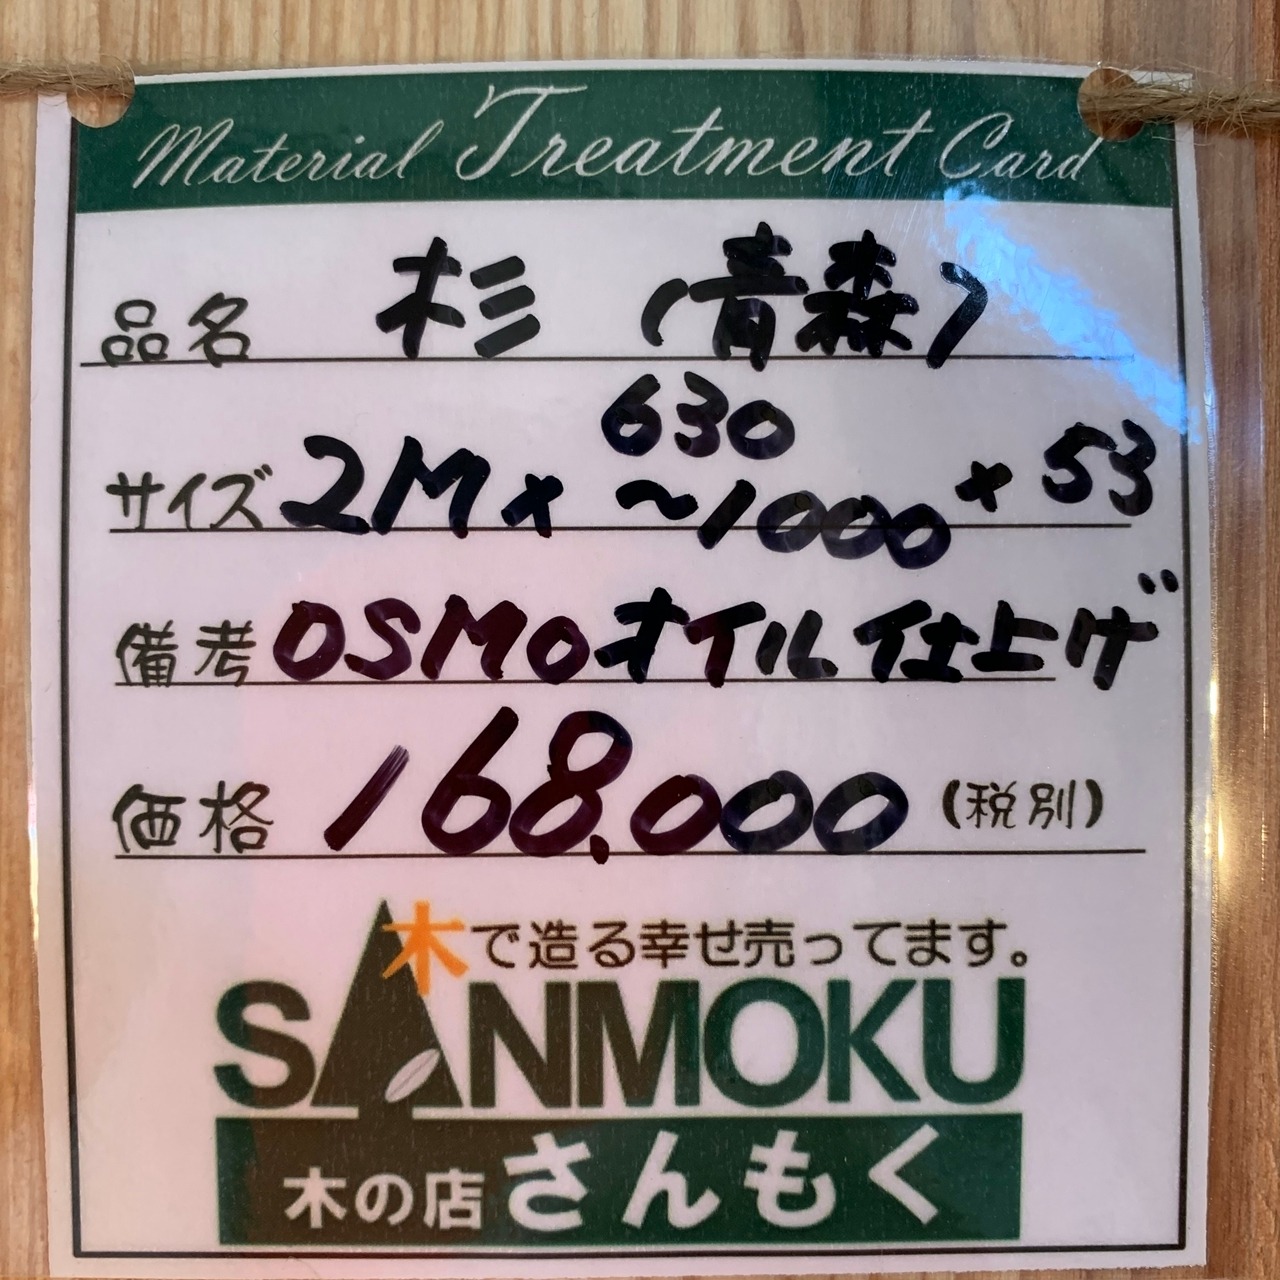 Material Treatment Card
品名 杉 (青森)
サイズ 2M × 630 ~1000 × 53
備考 OSMOオイル仕上げ
価格 168,000 (税別)
木で造る幸せ売ってます。
SANMOKU
木の店さんもく